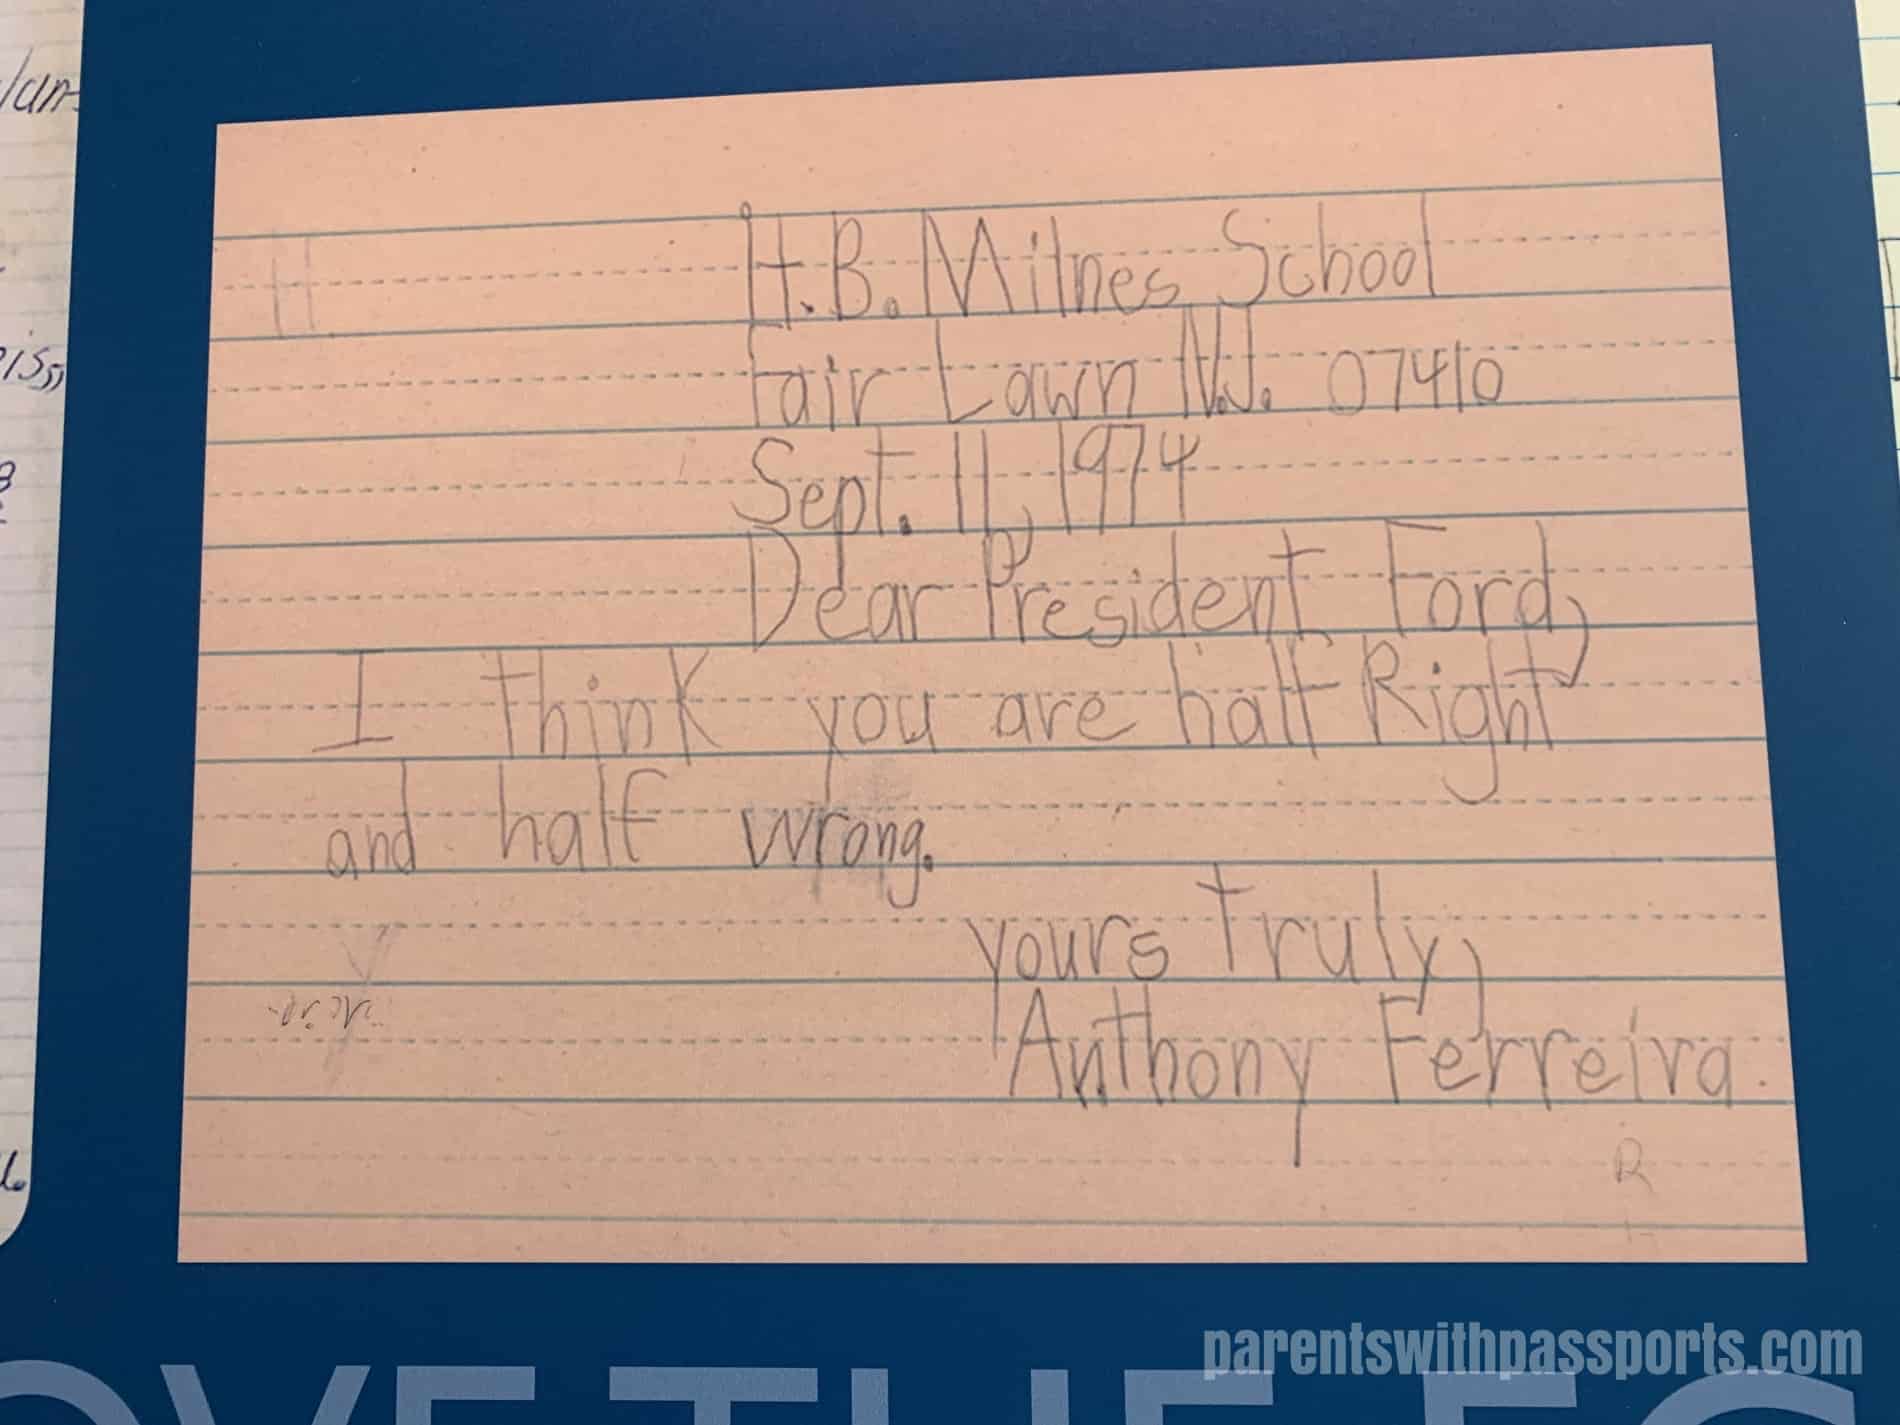 H.B. Milnes School
Fair Lawn N.J. 07410
Sept. 11, 1974
Dear President Ford,
I think you are half Right
and half wrong.
yours truly,
Anthony Ferreira.
R
parentswithpassports.com
OVE THE